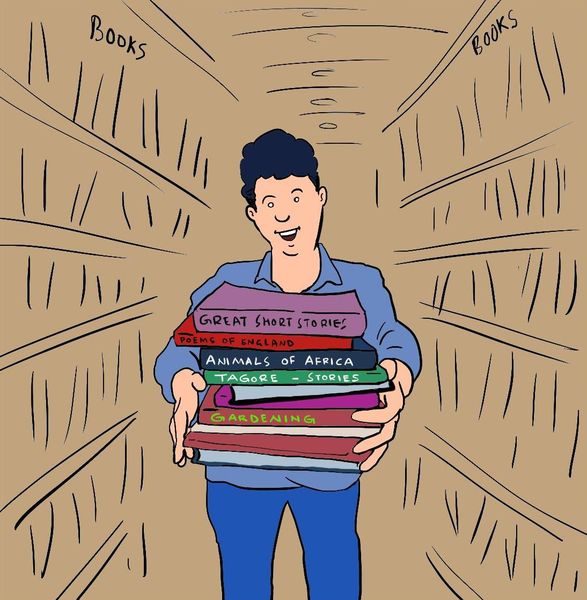 BOOKS
BOOKS
GREAT SHORT STORIES
POEMS OF ENGLAND
ANIMALS OF AFRICA
TAGORE - STORIES
GARDENING